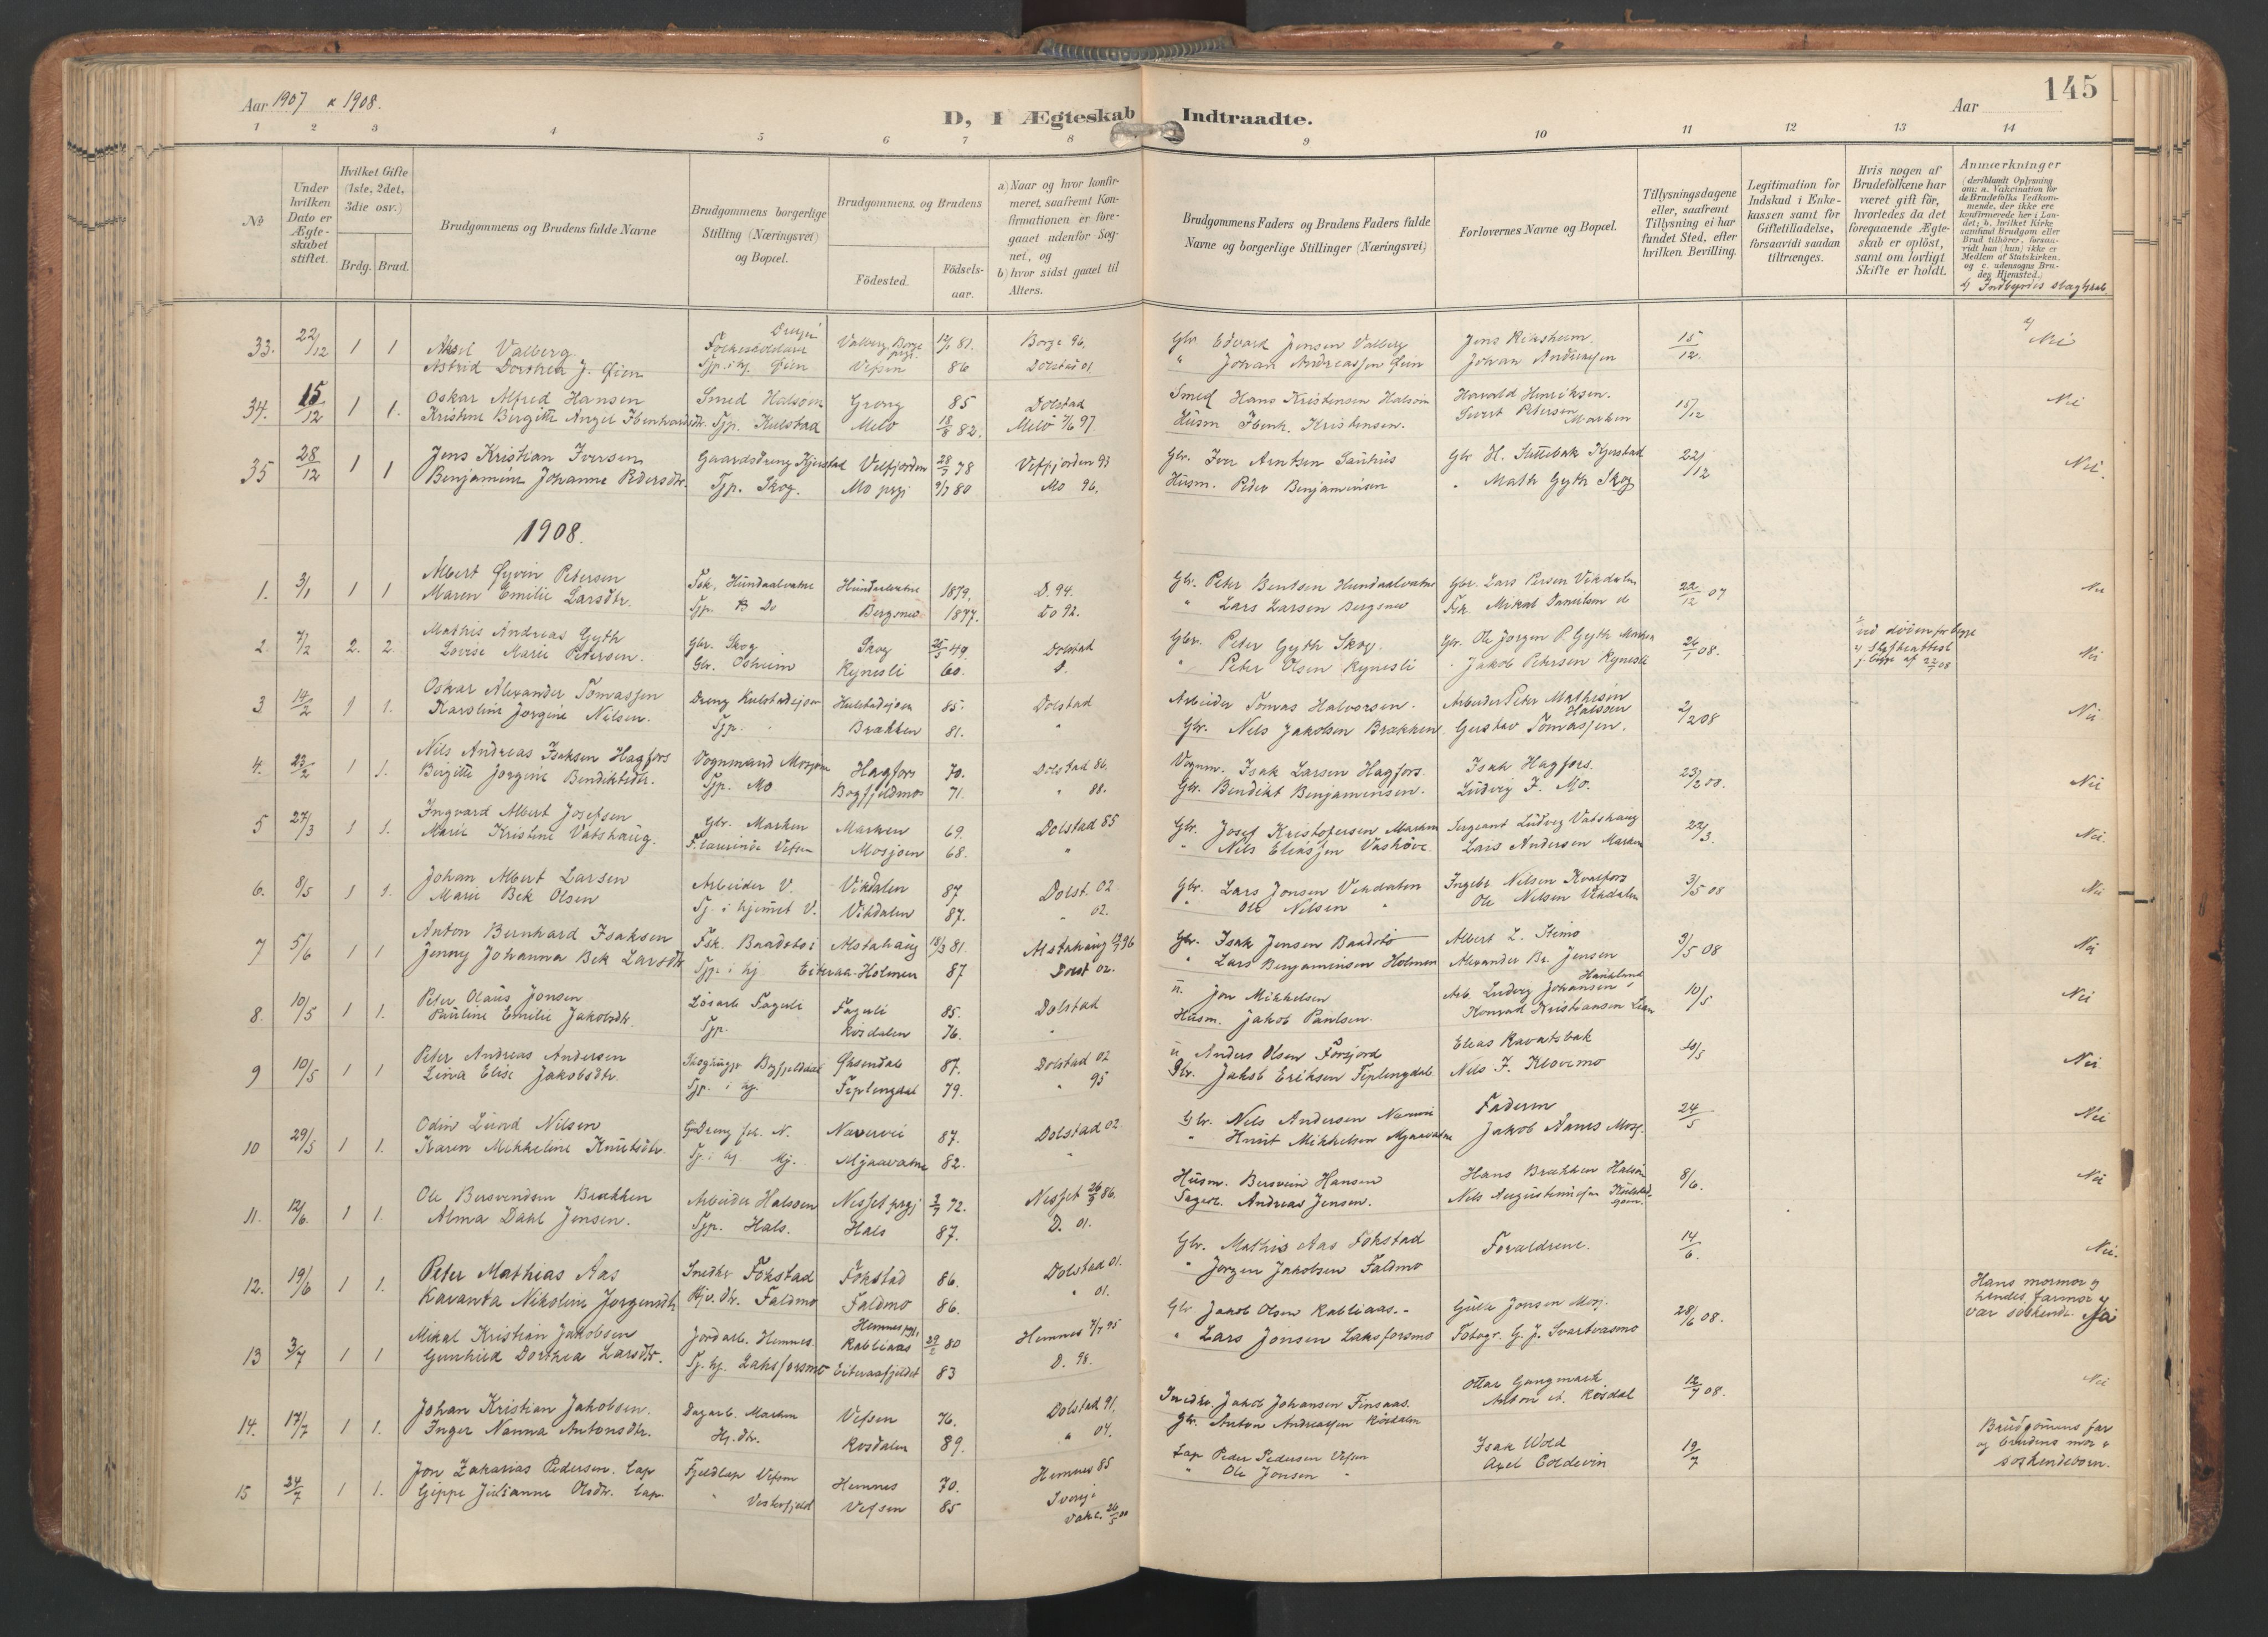 Aar 1907 & 1908.
D, I Ægteskab Indtraadte.
Aar
145
1 2 3 4 5 6 7 8 9 10 11 12 13 14
№
Under hvilken Dato er Ægteskabet stiftet.
Hvilket Gifte (1ste, 2det, 3die osv.)
Brdg. Brud.
Brudgommens og Brudens fulde Navne
Brudgommens borgerlige Stilling (Næringsvei) og Bopæl.
Brudgommens og Brudens
Födested. Födselsaar.
a) Naar og hvor konfirmeret, saafremt Konfirmationen er foregaaet udenfor Sognet, og
b) hvor sidst gaaet til Alters.
Brudgommens Faders og Brudens Faders fulde Navne og borgerlige Stillinger (Næringsvei)
Forlovernes Navne og Bopæl.
Tillysningsdagene eller, saafremt Tillysning ei har fundet Sted, efter hvilken Bevilling.
Legitimation for Indskud i Enkekassen samt for Giftetilladelse, forsaavidt saadan tiltrænges.
Hvis nogen af Brudefolkene har været gift för, hvorledes da det foregaaende Ægteskab er oplöst, samt om lovligt Skifte er holdt.
Anmærkninger
(deriblandt Oplysning om: a. Vakcination for de Brudefolks Vedkommende, der ikke ere konfirmerede her i Landet; b. hvilket Kirkesamfund Brudgom eller Brud tilhörer, forsaavidt han (hun) ikke er Medlem af Statskirken, og c. udensogns Brudes Hjemsted.)
33. 22/12 1 1 Aksel Valberg Valberg, Borge 81. Borge 96. Gbr Edvard Jensen Valberg 15/12. Nei
Astrid Dorthea J. Øien Tjp. i hj. Øien Vefsen 86 Dolstad 01 " Johan Andreassen Øien Johan Andreassen
34. 15/12 1 1. Oskar Alfred Hansen Smed Halsøen Grong 85 Dolstad Smed Hans Kristensen Halsøen Harald Henriksen. 15/12 Nei
Tjp. Kulstad Melö 18/8 82. Melö 97. Husm Kristensen. Sivert Petersen Marken
35 28/12 1 1 Jens Kristian Iversen Gaardsdreng Kjerstad Velfjorden 78 93 Gbr. Iver Arntsen 22/12 Nei.
Benjamine Johanne Pedersdtr. Tjp. Skog. Mo prgj 80 Mo 96. Husm. Peder Benjaminsen " Math Gyth Skog
1908.
1. 3/1 1 1 Albert Øyvin Petersen Hundaalvatne Hundaalvatne 1879. D. 94. Gbr. Peter Bentsen Hundaalvatne Gbr. Lars Larsen Vikdalen 22/12 07 Nei
Maren Emilie Larsdtr. Tjp. Do Bergsnev 1877. Do 92. " Lars Larsen Bergsnev
2. 7/2 2. 2 Mathis Andreas Gyth Gbr. Skog Skog 49. Dolstad Gbr. Peter Gyth Skog. Gbr. Ole Jørgen P. Gyth Marken 26/1 08. ved døden for begge Nei
Lovise Marie Petersen. Gbr. Osheim Rynesli 60. D. " Peter Olsen Rynesli " Jakob Petersen Rynesli
3 14/2 1 1. Oskar Alexander Tomassen Dreng Kulstadsjøen Kulstadsjøen 85. Dolstad Arbeider Tomas Halvorsen. Arbeider Peter Mathisen Halsøen 2/2 08 Nei
Karoline Jørgine Nilsen. Tjp. Brækken 81. " Gbr. Nils Jakobsen Brækken Gustav Tomassen.
4. 23/2 1 1. Nils Andreas Isaksen Hagfors Vognmand Mosjøen Hagfors 70. Dolstad 86. Vognm. Isak Larsen Hagfors Isak Hagfors. 23/2 08. Nei
Birgitte Jørgine Bendiktsdtr. Tjp. Mo Bogfjeldmo 71. " 88. Gbr. Bendikt Benjaminsen. Ludvig J. Mo.
5 27/3 1 1. Ingvard Albert Josefsen Gbr. Marken Marken 69. Dolstad 85 Gbr. Josef Kristofersen Marken Sergeant Ludvig Vatshaug 22/3. Nei.
Marie Kristine Vatshaug. Vefsen Mosjøen 68. " " Nils Eliassen Lars Andersen Marken
6. 8/5 1 1. Johan Albert Larsen Arbeider V. Vikdalen 87 Dolst. 02 Gbr. Lars Jonsen Vikdalen Ingebr Nilsen Kvalfors 3/5 08 Nei
Marie Bek Olsen Tj. i hjemmet V. Vikdalen 87. " 02. " Ole Nilsen " Ole Nilsen Vikdalen
7 5/6 1 1 Anton Bernhard Isaksen Fsk. Alstahaug 81. Alstahaug 96 Gbr. Isak Jensen Albert L. 3/5 08 Nei
Jenny Johanna Bek Larsdtr Tjp. i hj. Eiteraa-Holmen 87 Dolst 02. " Lars Benjaminsen Holmen Alexander Br. Jensen
8. 10/5 1 1. Peter Olaus Jonsen Løsarb. Fagerli Fagerli 85. Dolstad Jon Mikkelsen Arb. Ludvig Johansen 10/5 Nei
Pauline Emilie Jakobsdtr. Tjp. Rosdalen 76. Husm. Jakob Paulsen. Konrad Kristiansen
9 10/5 1 1 Peter Andreas Andersen Øksendal 87. Dolstad 02 Anders Olsen Forsjord Elias Ravatsbak 10/5 Nei
Lina Elise Jakobsdtr. Tjp. i hj. Fiplingdal 79. " 95 Gbr. Jakob Eriksen Fiplingdal Nils J. Klovimo
10 29/5 1 1. Odin Nilsen Navervei 87. Dolstad 02. Gbr. Nils Andersen Faderen 24/5 Nei
Karen Mikkeline Knutsdtr. Tj. i hj. Mj. Mjaavatne 82. " " Knut Mikkelsen Mjaavatne Jakob Aanes Mosj.
11. 12/6. 1 1. Ole Bersvendsen Brækken Arbeider Halsøen Nesset prgj 72. Nesset 86. Husm. Bersvein Hansen Hans Brækken Halsøen 8/6. Nei
Alma Dahl Jensen. Tjp. Hals. Hals 87. D. 01. Andreas Jensen.
12. 19/6 1 1. Peter Mathias Aas Fokstad Fokstad 86. Dolstad 01. Gbr. Mathis Aas Fokstad Forældrene. 14/6. Nei.
Ravanta Nikoline Jørgensdtr Faldmo Faldmo 86. " 01. " Jørgen Jakobsen Faldmo
13 3/7 1 1 Mikal Kristian Jakobsen Jordarb. Hemnes. Hemnes prgj. Rabliaas 80 Hemnes 95 Gbr Jakob Olsen Rabliaas. Jonsen Mosj. 28/6 08. Hans mormor og hendes farmor var søskende. Ja
Gunhild Dorthea Larsdtr. Tj. hj. Laksforsmo Eiteraafjeldet 83 D. 98. " Lars Jonsen Laksforsmo Fotogr. G. J. Svartvasmo
14. 17/7 1 1. Johan Kristian Jakobsen. Dagarb. Marken Vefsen 76. Dolstad 91. Jakob Johansen Finsaas. Ottar Gangmark 12/7 08. Nei
Inger Nanna Antonsdtr. Hj. dtr. Rosdalen 89. " 04. Gbr. Anton Andreassen Rosdalen Anton A. Rosdal
15 24/7 1 1. Jon Zakarias Pedersen. Lap Fjeldlap Vefsen Hemnes 70. Hemnes 85 Lap Peder Pedersen Vefsen Isak Wold 19/7 Brudgomens far og brudens mor søskendebørn.
Gippe Julianne Olsdtr. Lap " Vesterfjeld Vefsen 85 Sverige Vakc. 26/5 00 " Ole Jonsen " Axel Coldevin